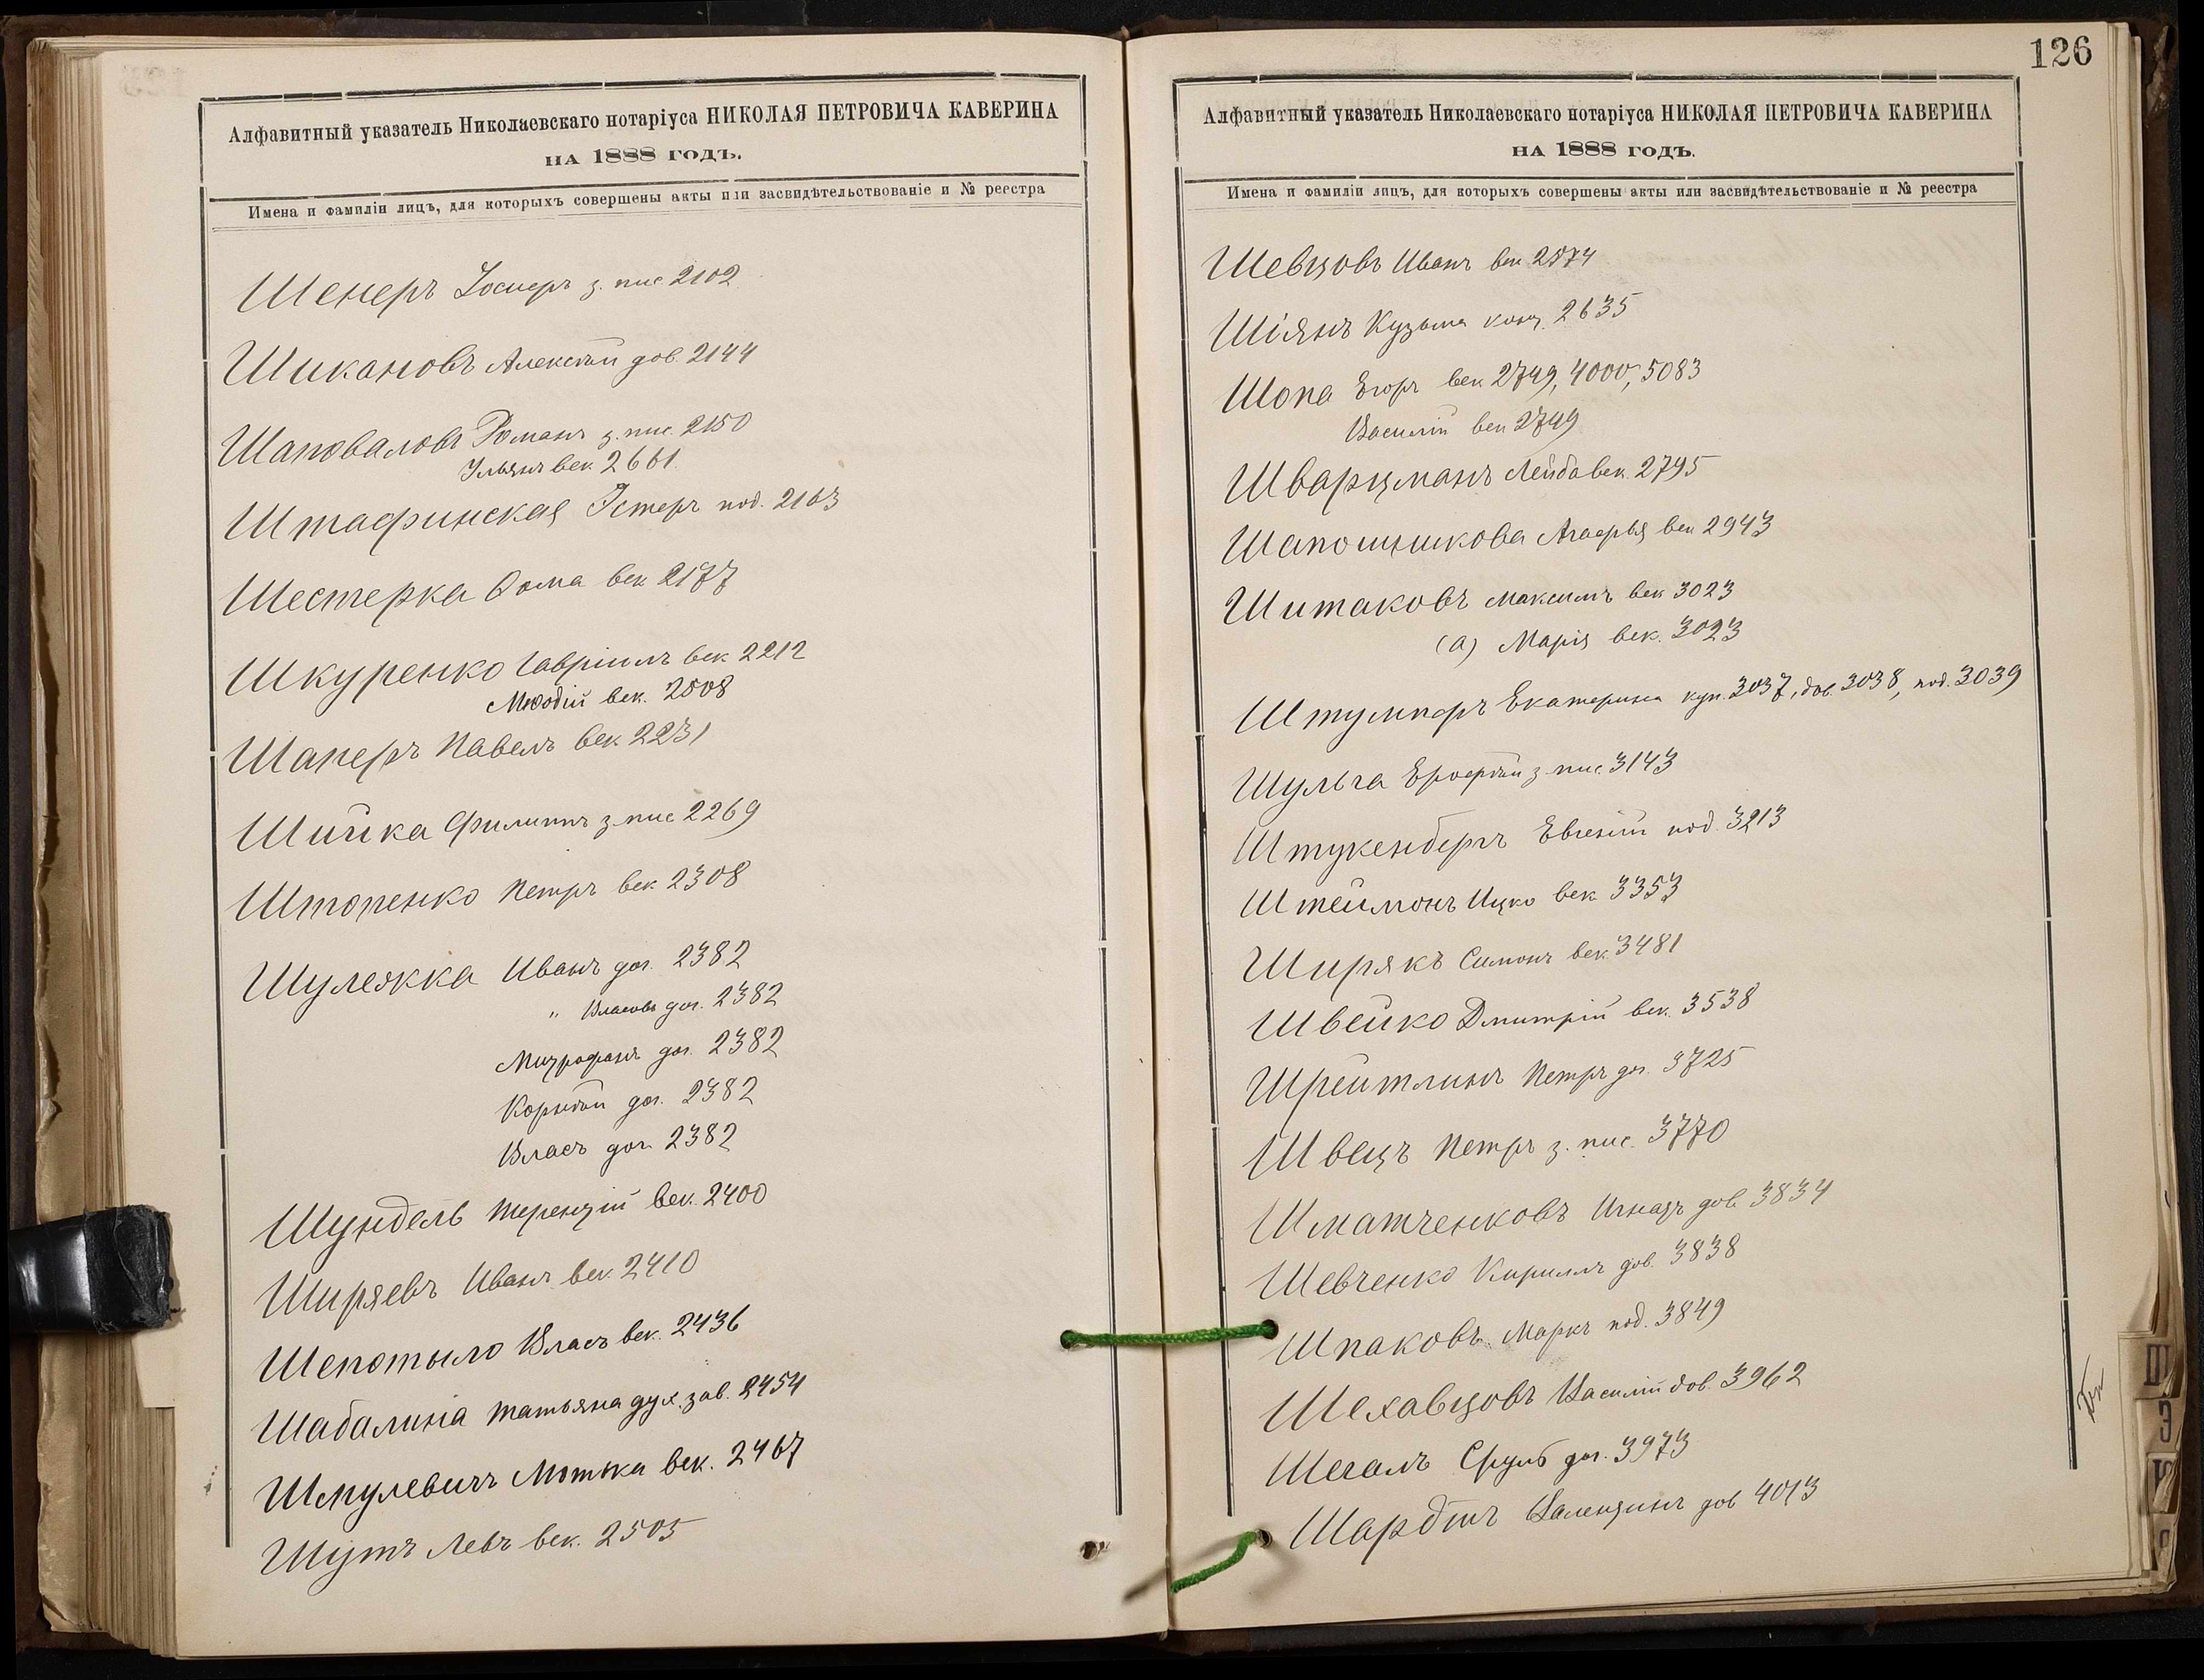 Алфавитный указатель Николаевскаго нотаріуса НИКОЛАЯ ПЕТРОВИЧА КАВЕРИНА
НА 1888 ГОДЪ.
Имена и фамиліи лицъ, для которыхъ совершены акты или засвидѣтельствованіе и № реестра
Шенеръ з. пис 2102
Шикановъ Алексѣй дов. 2144
Шаповаловъ Романъ з. пис. 2150
Ульянъ век. 2661.
Штафинская Эстеръ под. 2163
Шестерка Ѳома век 2177
Шкуренко Гавріилъ век 2212
Меѳодій век. 2508
Шаперъ Павелъ век 2231
Шийка Филиппъ з. пис 2269
Штопенко Петръ век 2308
Шулежка Иванъ дог. 2382
" Власовъ дог. 2382
Митрофанъ дог. 2382
Корнѣй дог. 2382
Власъ дог. 2382
Шундель Терентій век. 2400
Ширяевъ Иванъ век. 2410
Шепотыло Власъ век. 2436
Шабалина Татьяна дух. зав. 2454
Шмулевичъ Мотька век. 2467
Шутъ Левъ век. 2505
126
Алфавитный указатель Николаевскаго нотаріуса НИКОЛАЯ ПЕТРОВИЧА КАВЕРИНА
НА 1888 ГОДЪ.
Имена и фамиліи лицъ, для которыхъ совершены акты или засвидѣтельствованіе и № реестра
Шевцовъ Иванъ век 2574
Шіянъ Кузьма 2635
Шопа Егоръ век 2749, 4000, 5083
Василій век 2749
Шварцманъ Лейба век. 2795
Шапошникова Агафья век 2943
Шитаковъ Максимъ век 3023
(а) Марія век. 3023
Штумперъ Екатерина куп. 3037, дов. 3038, под. 3039
Шульга Ерофѣй з. пис. 3143
Штукенбергъ Евгеній под. 3213
Штеймонъ Ицко век 3353
Ширякъ Симонъ век. 3481
Швейко Дмитрій век. 3538
Шрейтлинъ Петръ дог. 3725
Швецъ Петръ з. пис. 3770
Шматченковъ Игнатъ дов 3834
Шевченко Кириллъ дов. 3838
Шпаковъ Маркъ под. 3849
Шехавцовъ Василій дов. 3962
Шегалъ Сруль дог. 3973
Шардтъ Валентинъ дов 4013
Ш
Э